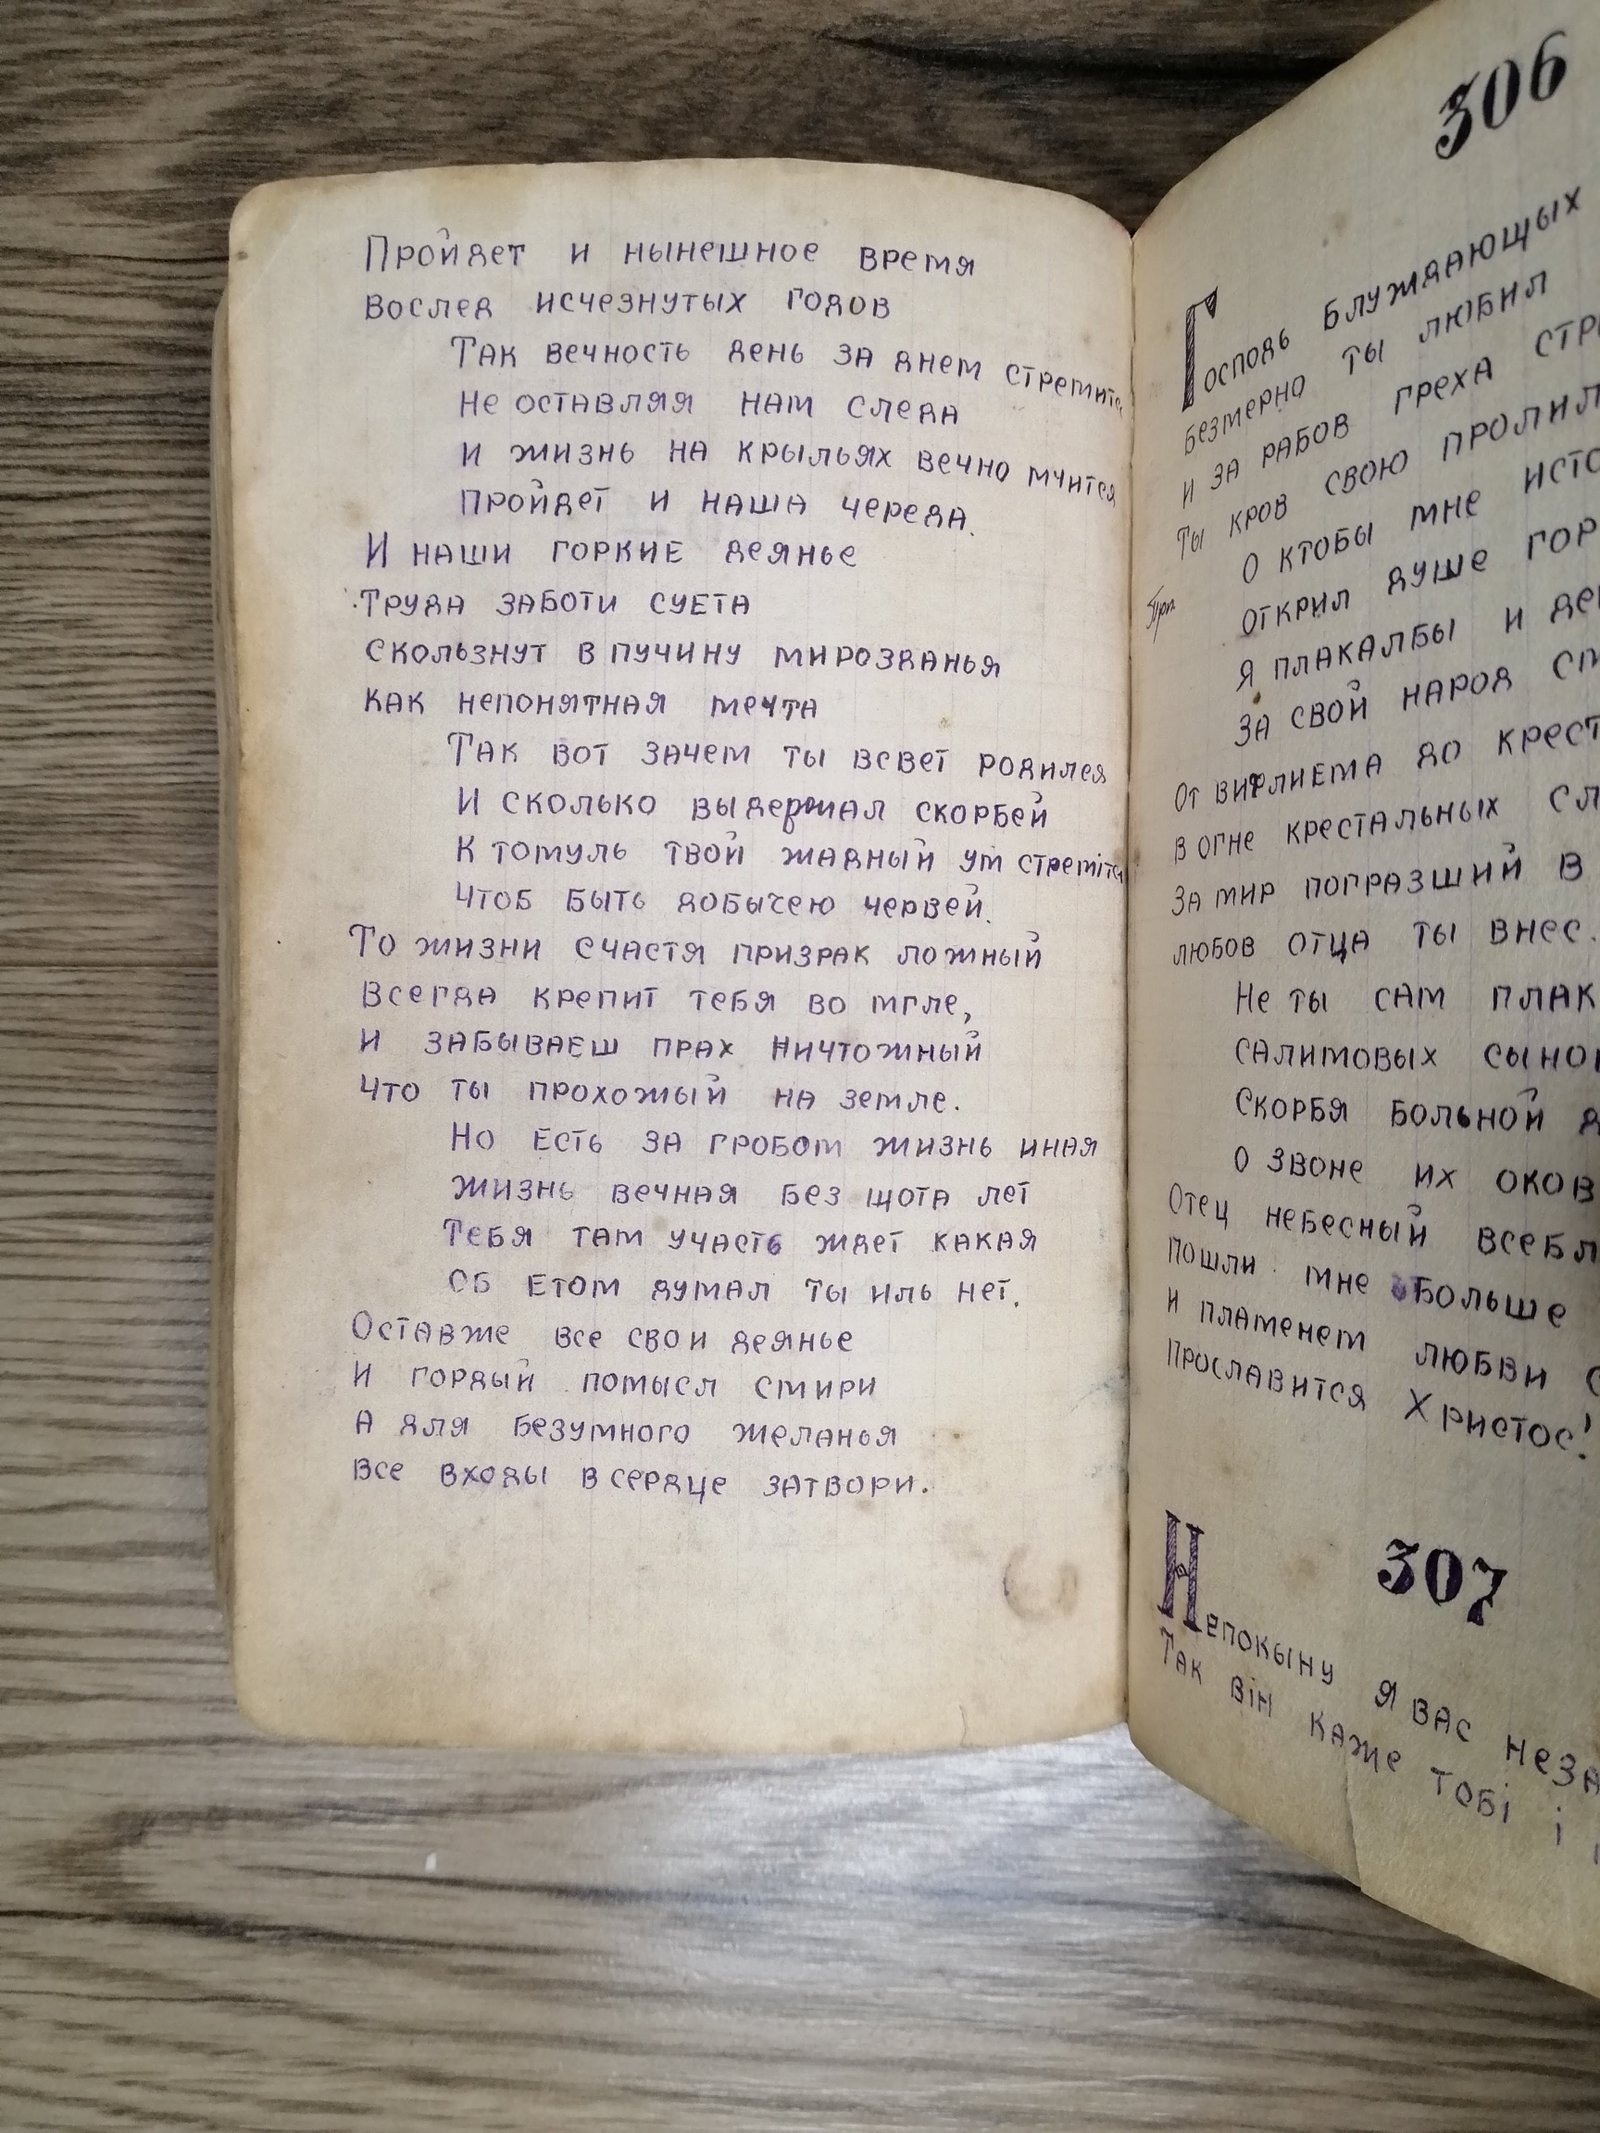 Пройдет и нынешное время
вослед исчезнутых годов
Так вечность день за днем стремится
Не оставляя нам следа
и жизнь на крыльях вечно мчится
пройдет и наша череда.
И наши горкие деянье
труда заботи суета
скользнут в пучину мирозданья
как непонятная мечта
Так вот зачем ты всвет родился
И сколько выдержал скорбей
К томуль твой жадный ум стремітся
чтоб быть добычею червей.
То жизни счастя призрак ложный
Всегда крепит тебя во мгле,
и забываеш прах ничтожный
что ты прохожый на земле.
Но есть за гробом жизнь иная
жизнь вечная без щота лет
Тебя там участь ждет какая
об етом думал ты иль нет.
Оставже все свои деянье
и гордый помысл смири
А для безумного желанья
все входы в сердце затвори.
306
Господь блуждающых
безмерно ты любил
и за рабов греха
ты кров свою пролил
О ктобы мне
открил душе
Я плакалбы и
за свой народ
От вифлиема до
в огне крестальных
за мир погразший в
любов отца ты внес.
Не ты сам
салимовых
Скорбя больной
о звоне их оков
Отец небесный
пошли мне больше
и пламенем любви
прославится Христос!
307
Непокыну я вас
Так він каже тобі і